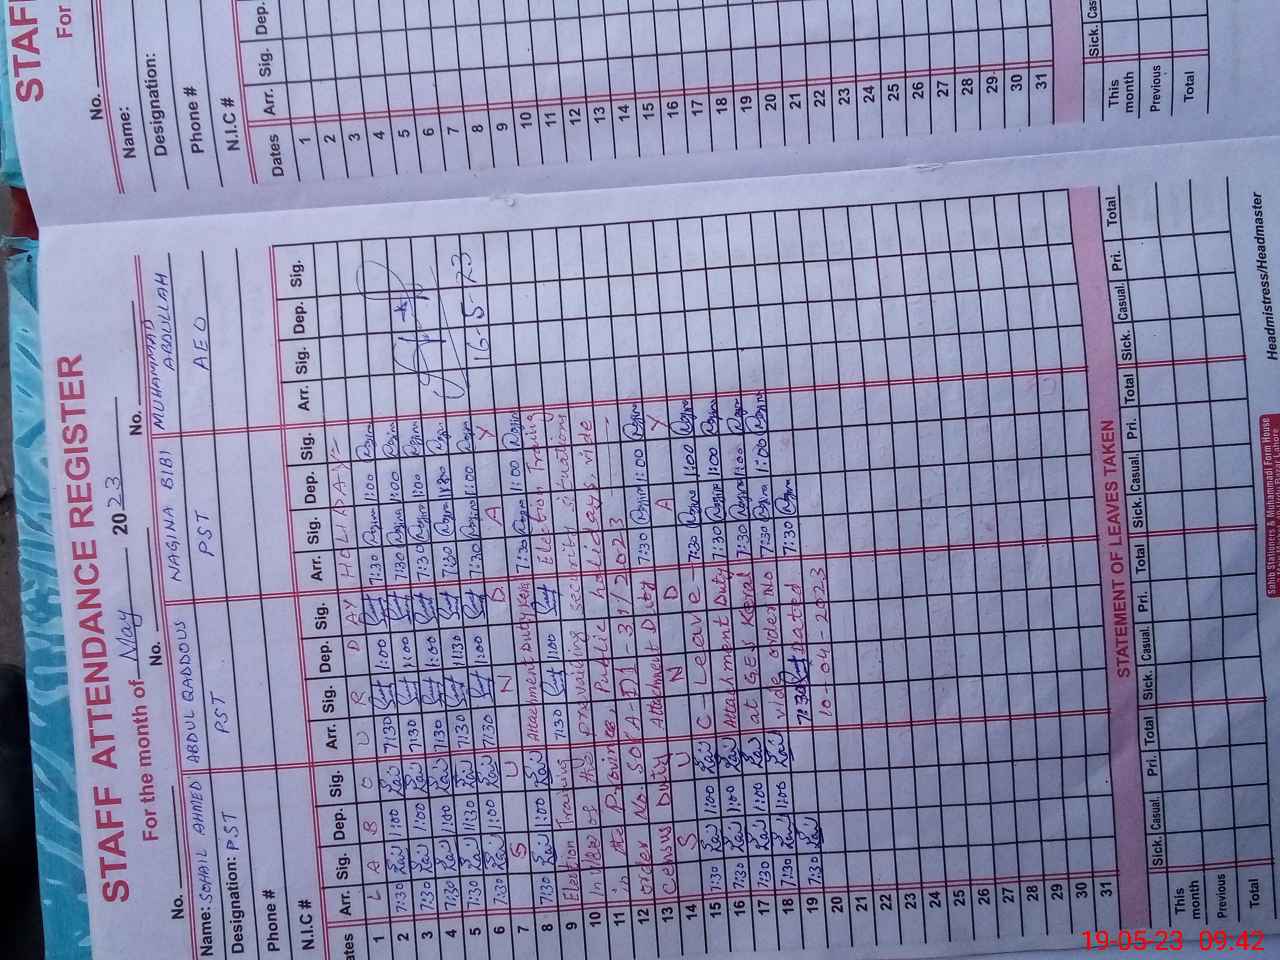 STAFF ATTENDANCE REGISTER
For the month of May 2023
No. No. No.
Name: SOHAIL AHMED ABDUL QADDOUS NAGINA BIBI MUHAMMAD ABDULLAH
Designation: PST PST PST AEO
Phone #
N.I.C #
Arr. Sig. Dep. Sig. Arr. Sig. Dep. Sig. Arr. Sig. Dep. Sig. Arr. Sig. Dep. Sig.
1 L A B O U R D A Y HOLIDAY
2 7:30 1:00 7:30 1:00 7:30 1:00
3 7:30 1:00 7:30 1:00 7:30 1:00
4 7:30 1:00 7:30 1:00 7:30 1:00
5 7:30 11:30 7:30 11:30 7:30 11:30
6 7:30 1:00 7:30 1:00 7:30 1:00 16-5-23
7 S U N D A Y
8 7:30 1:00 Attachment Duty 7:30 1:00
9 Election Training 7:30 1:00 Election Training
10 In View of the prevailing security situations
11 in the Province, Public holidays vide
12 order No. 31/2023
13 Census Duty Attachment Duty 7:30 1:00
14 S U N D A Y
15 7:30 1:00 C - Leave - 7:30 1:00
16 7:30 1:00 Attachment Duty 7:30 1:00
17 7:30 1:00 at GES Keral 7:30 1:00
18 7:30 1:00 vide order No 7:30 1:00
19 7:30 7:30 Dated 7:30
20 10-04-2023
21
22
23
24
25
26
27
28
29
30
31
STATEMENT OF LEAVES TAKEN
Sick. Casual. Pri. Total Sick. Casual. Pri. Total Sick. Casual. Pri. Total Sick. Casual. Pri. Total
This month
Previous
Total
Headmistress/Headmaster
Sahib Stationers & Muhammadi Form House
STAFF
For
No.
Name:
Designation:
Phone #
N.I.C #
Dates Arr. Sig. Dep.
1
2
3
4
5
6
7
8
9
10
11
12
13
14
15
16
17
18
19
20
21
22
23
24
25
26
27
28
29
30
31
Sick. Cas
This month
Previous
Total
19-05-23 09:42